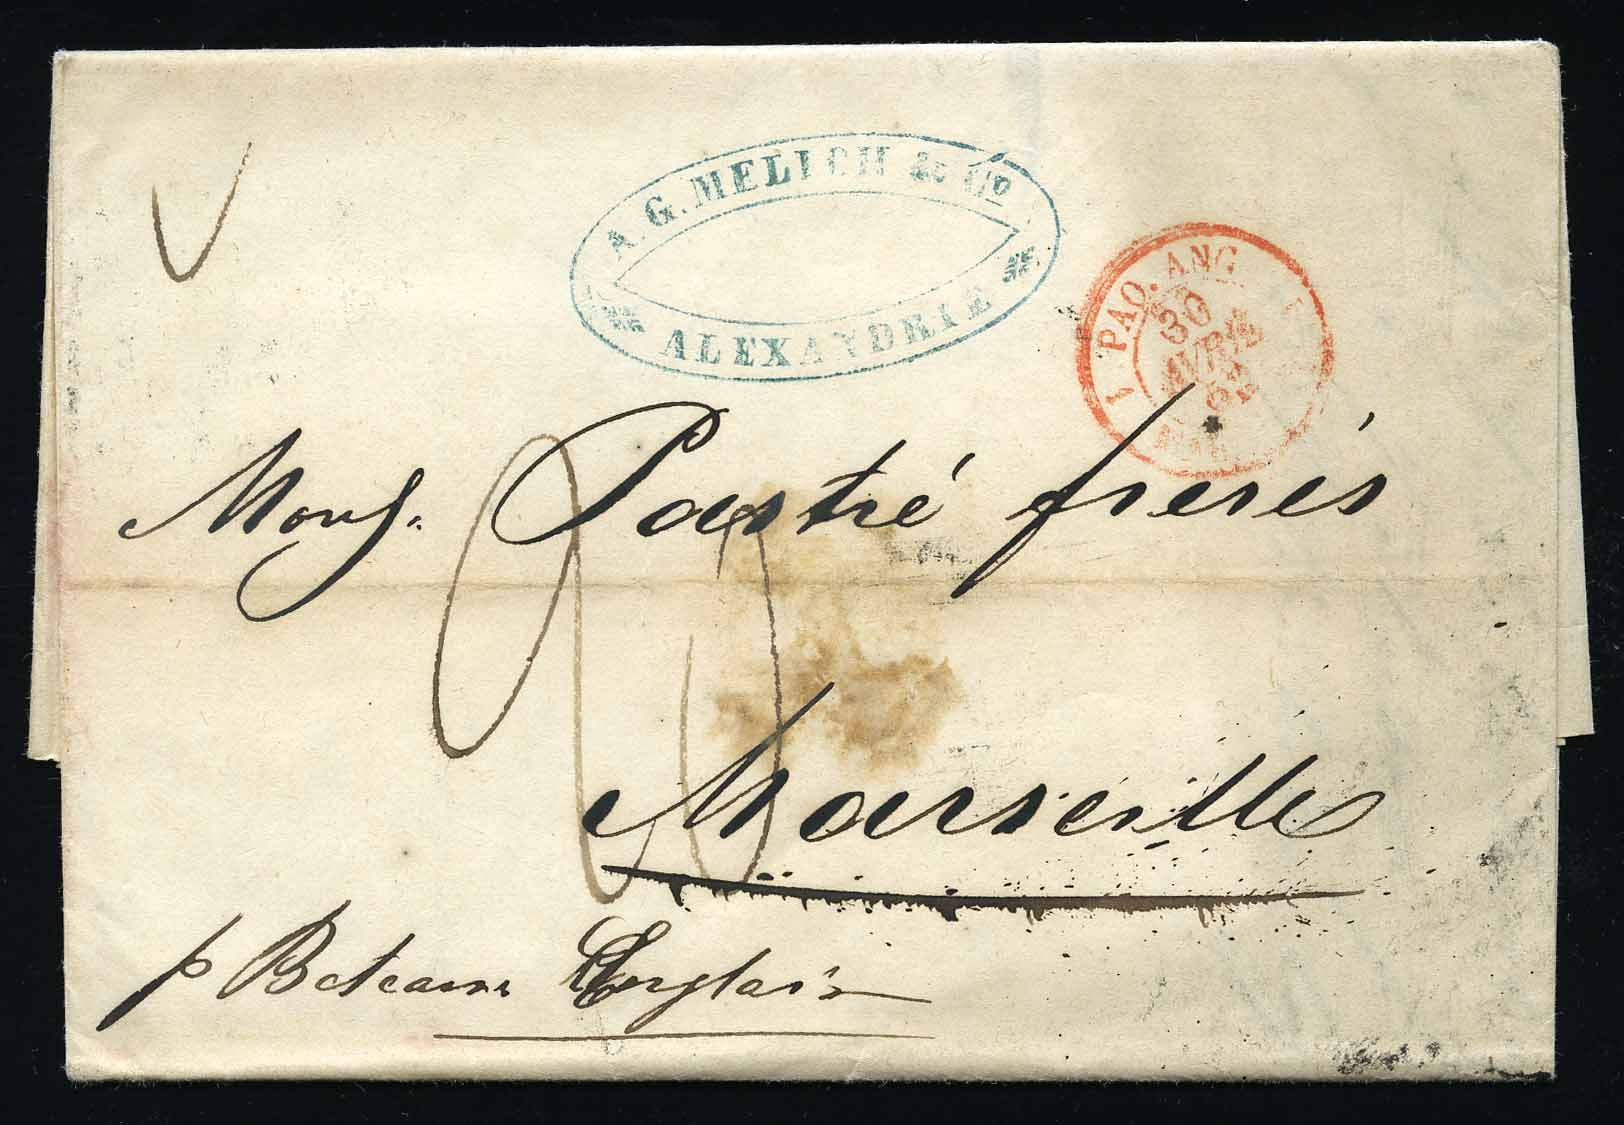 A. G. MELICH & Co
ALEXANDRIE
PAQ. ANG
30
AVRIL
62
Mons. Pastré freres
Marseille
p Bateau Anglais